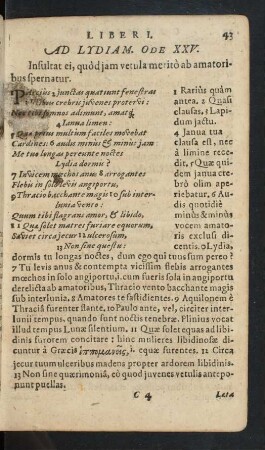 LIBER I. 43
AD LYDIAM. ODE XXV.
Insultat ei, quòd jam vetula meritò ab amatori-
bus spernatur.
PArcius 2 junctas quatiunt fenestras
Ictibus crebris juvenes protervi:
Nec tibi somnos adimunt, amatq́
4 Ianua limen:
5 Quæ prius multum faciles movebat
Cardines: 6 audis minus & minus jam
Me tuo longas pereunte noctes
Lydia dormis?
7 Invicem mœchos anus 8 arrogantes
Flebis in solo levis angiportu,
9 Thracio bacchante magis 10 sub inter-
lunia vento:
Quum tibi flagrans amor, & libido,
11 Quæ solet matres furiare equorum,
Sæviet circa jecur 12 ulcerosum,
13 Non sine questu:
1 Rariùs quàm
antea. 2 Quasi
clausas, 3 Lapi-
dum jactu.
4 Janua tua
clausa est, nec
à limine rece-
dit, 5 Quæ qui-
dem janua cre-
brò olim ape-
riebatur, 6 Au-
dis quotidiè
minùs & minùs
vocem amato-
ris exclusi di-
centis. O Lydia,
dormis tu longas noctes, dum ego qui tuus sum pereo?
7 Tu levis anus & contempta vicissim flebis arrogantes
mœchos in solo angiportu, cum sueris sola in angiportu
derelicta ab amatoribus, Thracio vento bacchante magis
sub interlunia, 8 Amatores te fastidientes. 9 Aquilonem è
Thraciâ furenter flante, 10 Paulo ante, vel, circiter inter-
lunii tempus, quando sunt noctis tenebræ. Plinius vocat
illud tempus Lunæ silentium. 11 Quæ solet equas ad libi-
dinis furorem concitare: hinc mulieres libidinosæ di-
cuntur à Græcis ἱππομανῆς, i. equæ furentes. 12 Circa
jecur tuum ulceribus madens propter ardorem libidinis.
13 Non sine quærimoniâ, eò quod juvenes vetulis antepo-
nunt puellas.
C 4